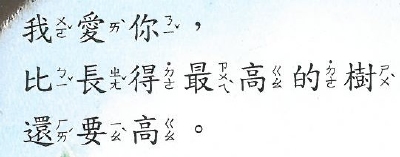 我ㄨㄛˇ愛ㄞˋ你ㄋㄧˇ，
比ㄅㄧˇ長ㄓㄤˇ得˙ㄉㄜ最ㄗㄨㄟˋ高ㄍㄠ的˙ㄉㄜ樹ㄕㄨˋ
還ㄏㄞˊ要ㄧㄠˋ高ㄍㄠ。